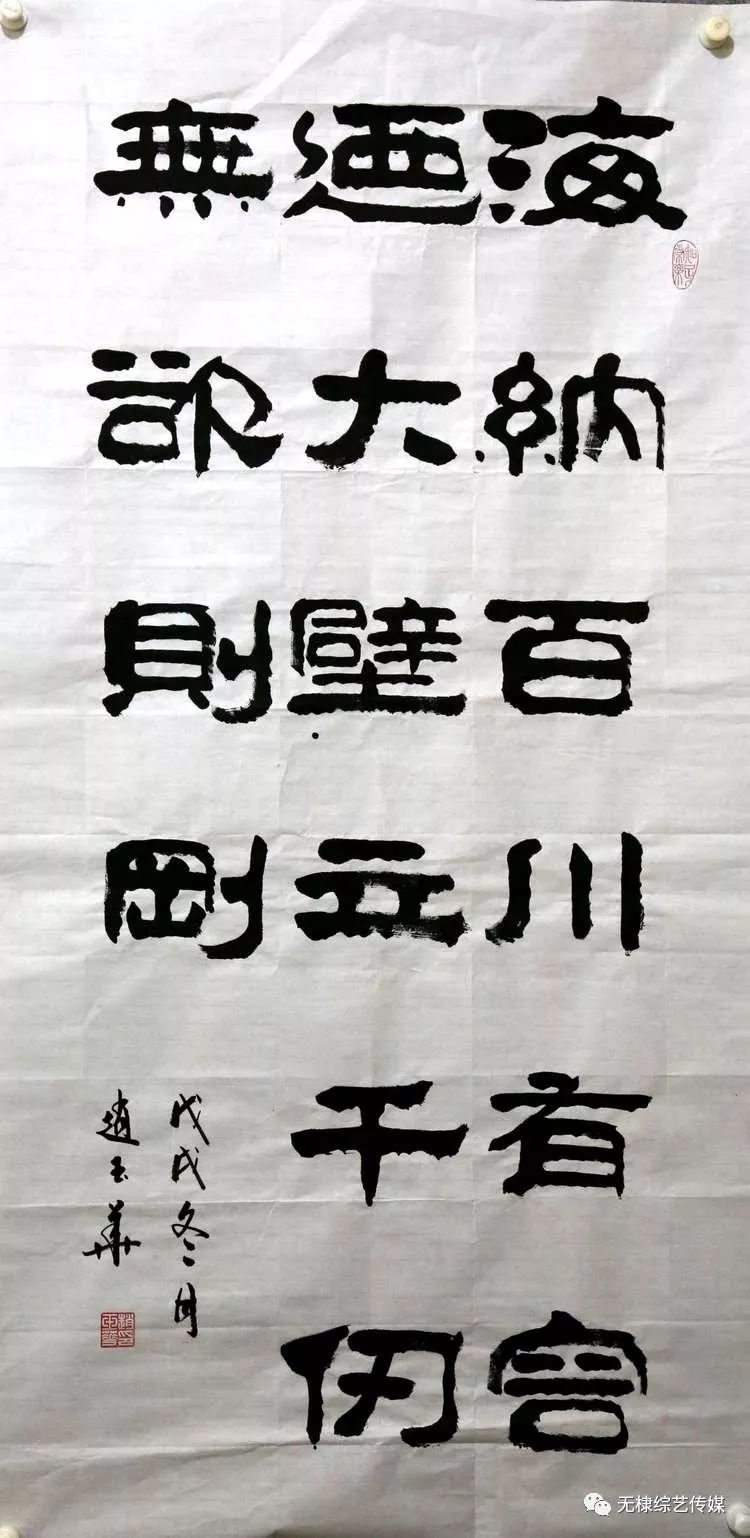 海納百川有容
迺大壁立千仞
無欲則剛
戊戌冬月
趙玉華
无棣综艺传媒